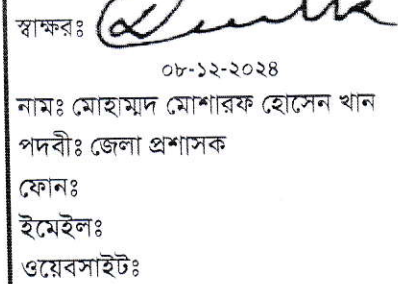 স্বাক্ষরঃ
০৮-১২-২০২৪
নামঃ মোহাম্মদ মোশারফ হোসেন খান
পদবীঃ জেলা প্রশাসক
ফোনঃ
ইমেইলঃ
ওয়েবসাইটঃ